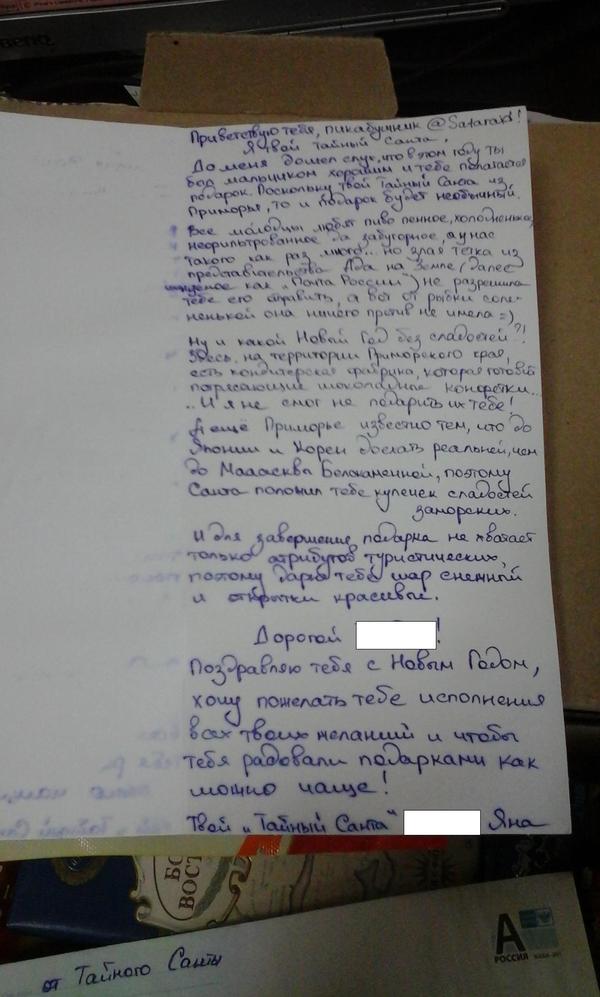 BENQ
Приветствую тебя, пикабушник @Sataraid!
Я твой Тайный Санта.
До меня дошел слух, что в этом году ты
был мальчиком хорошим и тебе полагается
подарок. Поскольку твой Тайный Санта из
Приморья, то и подарок будет необычный.
Все молодцы любят пиво пенное, холодненькое,
нефильтрованное да забугорное, а у нас
такого как раз много... но злая тётка из
представительства Ада на Земле (далее
именуемое как "Почта России") не разрешила
тебе его отправить, а вот от рыбки соле-
ненькой она ничего против не имела =)
Ну и какой Новый Год без сладостей?!
Здесь, на территории Приморского края,
есть кондитерская фабрика, которая готовит
потрясающие шоколадные конфетки...
...И я не смог не подарить их тебе!
А ещё Приморье известно тем, что до
Японии и Кореи доехать реальней, чем
до Мааасквы Белокаменной, поэтому
Санта положил тебе кулечек сладостей
заморских.
И для завершения подарка не хватает
только атрибутов туристических,
поэтому дарю тебе шар снежный
и открытки красивые.
Дорогой !
Поздравляю тебя с Новым Годом,
хочу пожелать тебе исполнения
всех твоих желаний и чтобы
тебя радовали подарками как
можно чаще!
Твой "Тайный Санта" Яна
БО
ВОСТ
А
РОССИЯ
от Тайного Санты